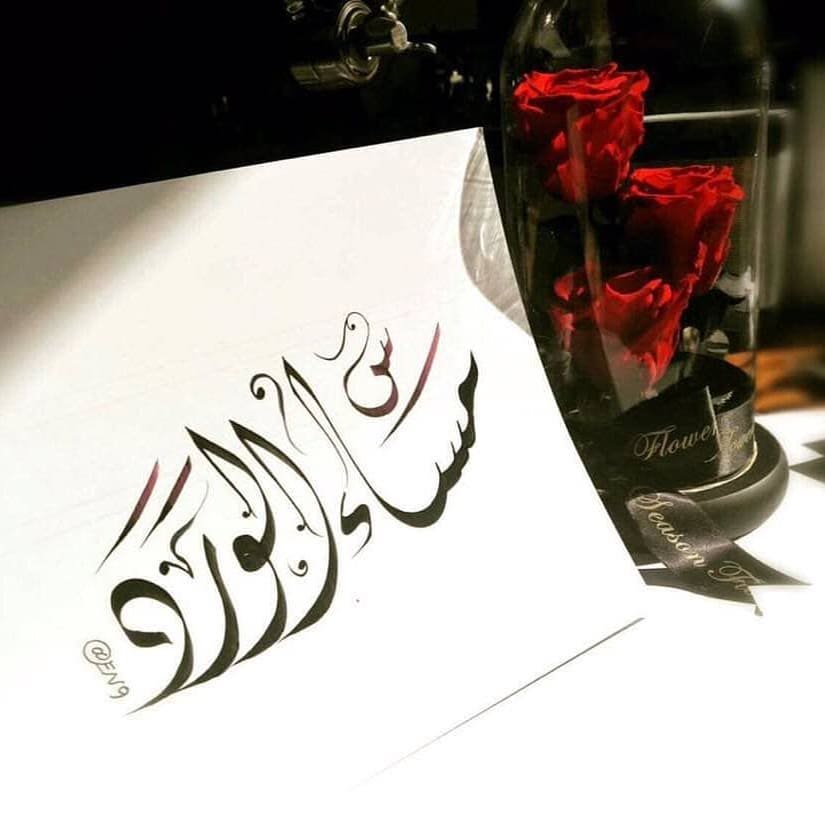 مساء الورد
@EN9
Flower
Season